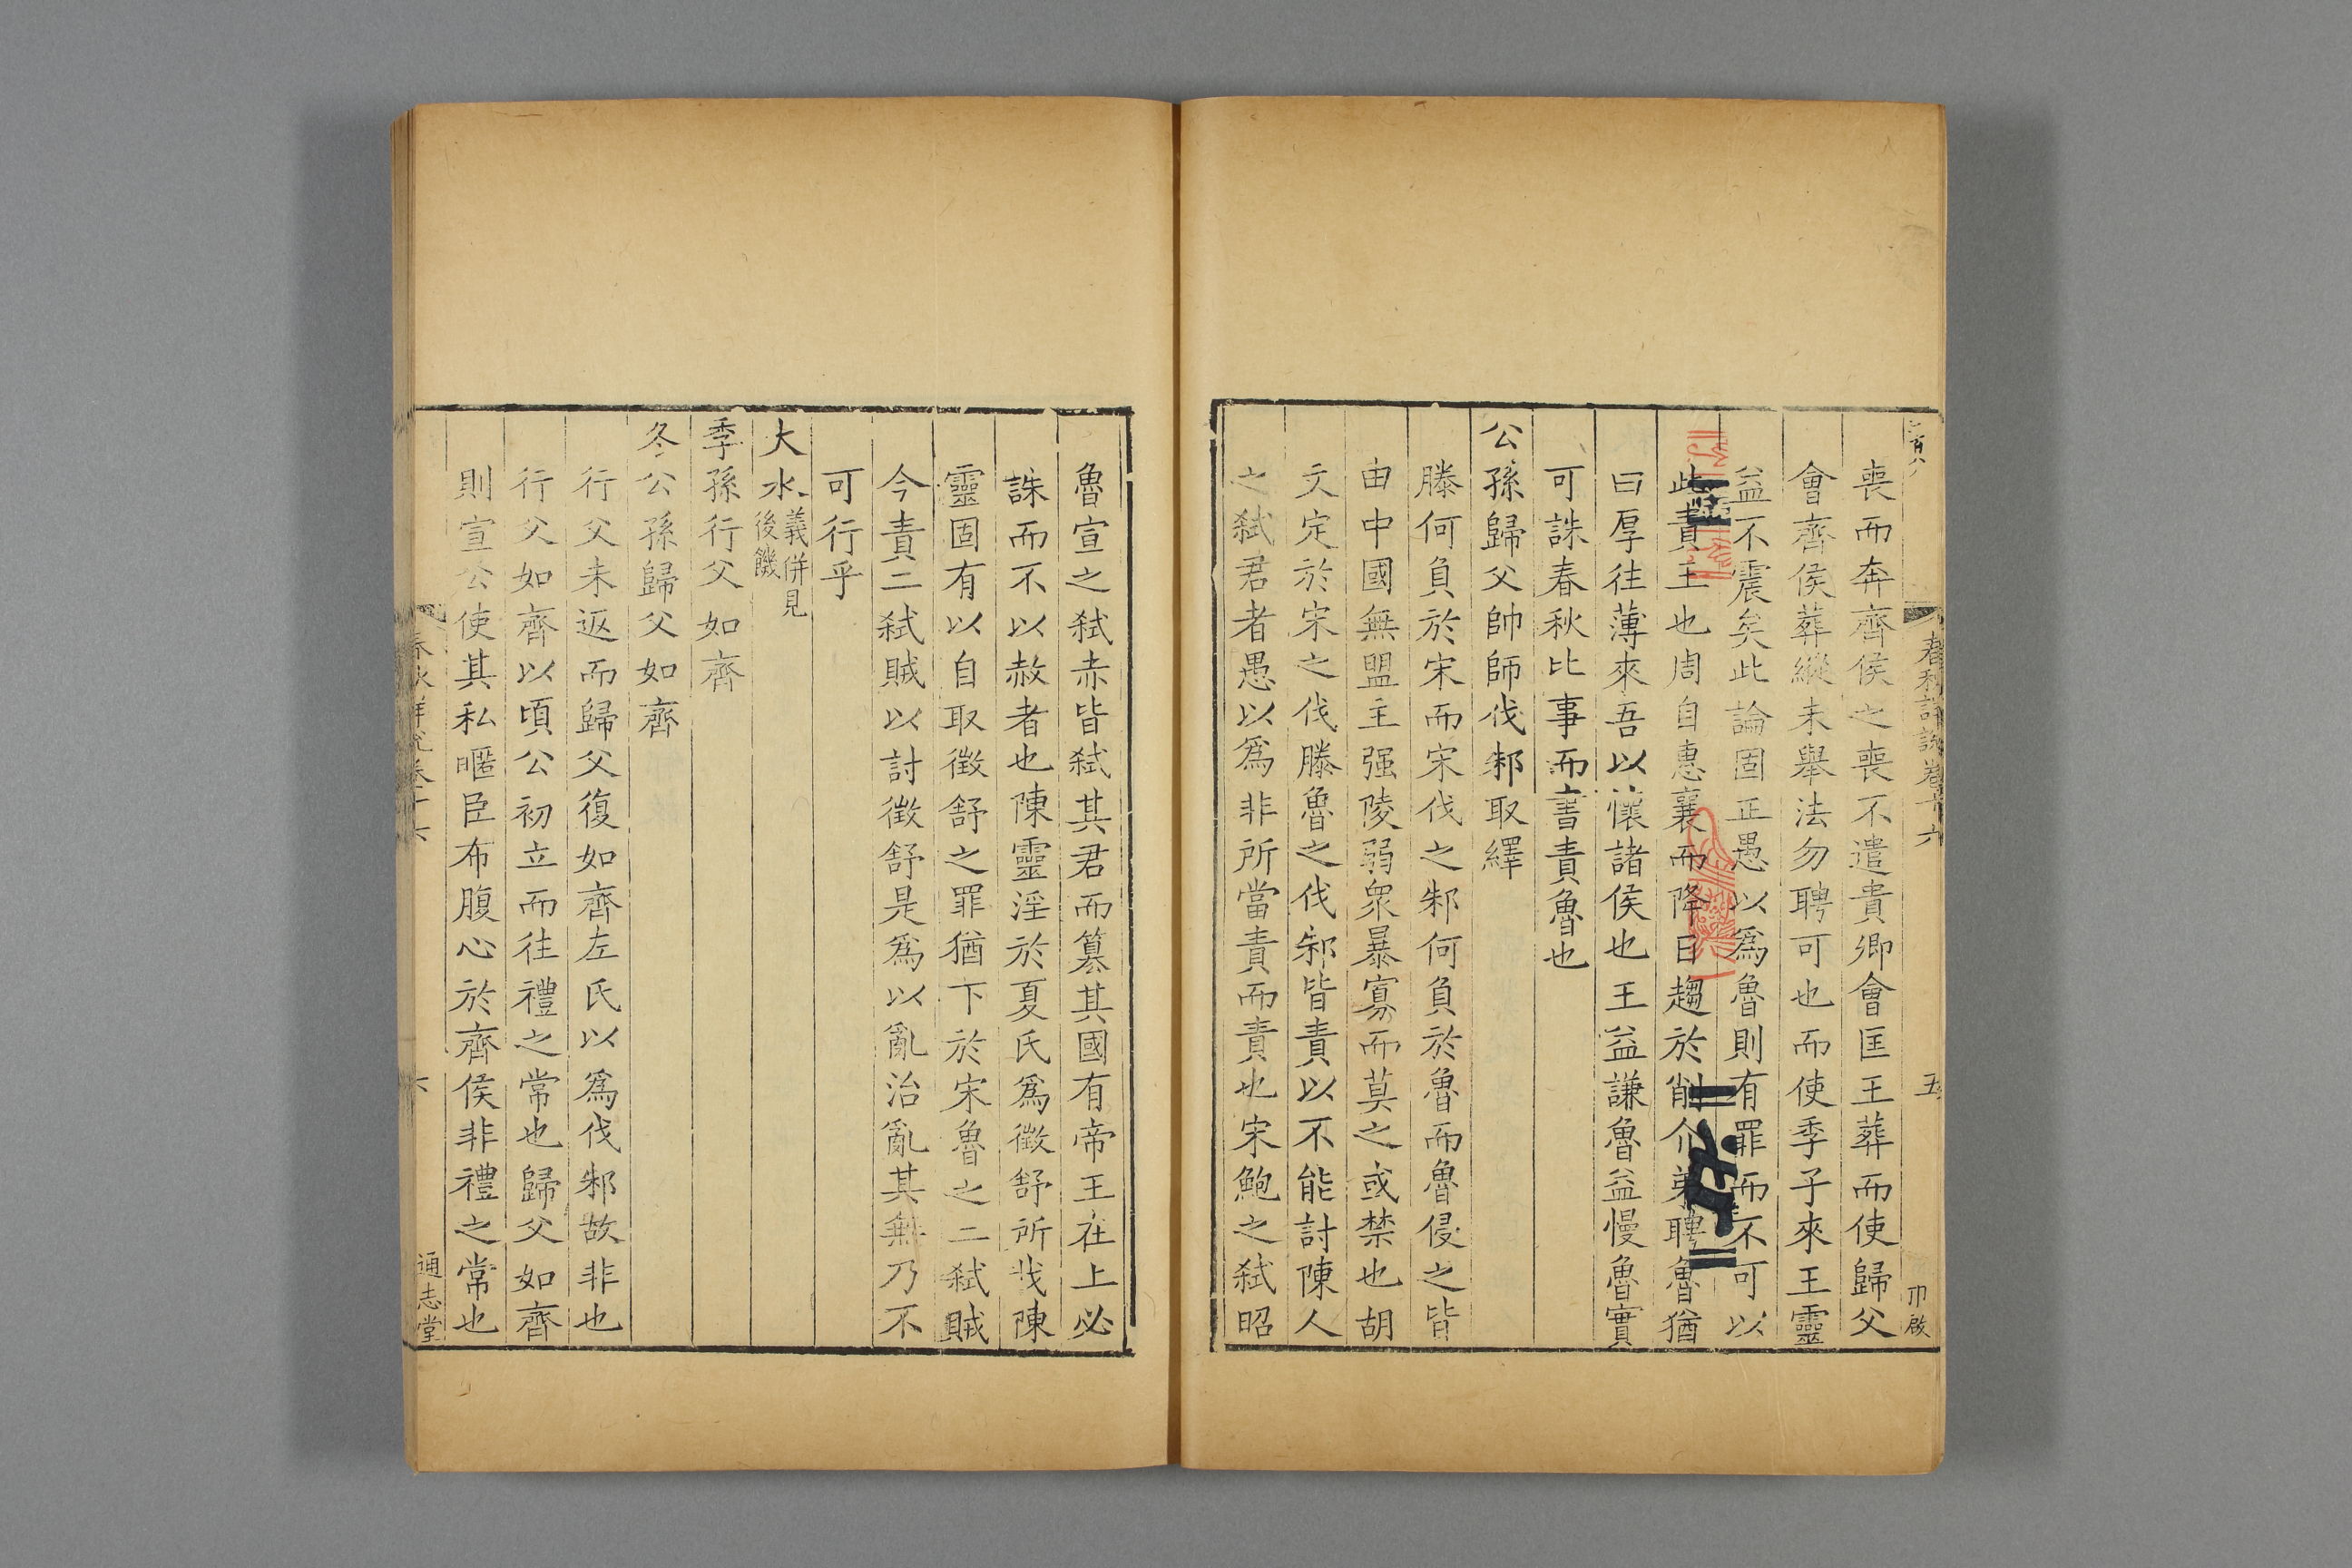 春秋詳說卷十六
五
喪而奔齊侯之喪不遣貴卿會匡王葬而使歸父
會齊侯葬縱未舉法勿聘可也而使季子來王靈
益不震矣此論固正愚以爲魯則有罪而不可以
此責王也周自惠襄而降日趨於削介弟聘魯猶
曰厚往薄來吾以懷諸侯也王益謙魯益慢魯實
可誅春秋比事而書責魯也
公孫歸父帥師伐邾取繹
滕何負於宋而宋伐之邾何負於魯而魯侵之皆
由中國無盟主强陵弱衆暴寡而莫之或禁也胡
文定於宋之伐滕魯之伐邾皆責以不能討陳人
之弑君者愚以爲非所當責而責也宋鮑之弑昭
魯宣之弑赤皆弑其君而簒其國有帝王在上必
誅而不以赦者也陳靈淫於夏氏爲徵舒所戕陳
靈固有以自取徵舒之罪猶下於宋魯之二弑賊
今責二弑賊以討徵舒是爲以亂治亂其無乃不
可行乎
大水義併見
後饑
季孫行父如齊
冬公孫歸父如齊
行父未返而歸父復如齊左氏以爲伐邾故非也
行父如齊以頃公初立而往禮之常也歸父如齊
則宣公使其私暱臣布腹心於齊侯非禮之常也
春秋詳說卷十六
六
通志堂